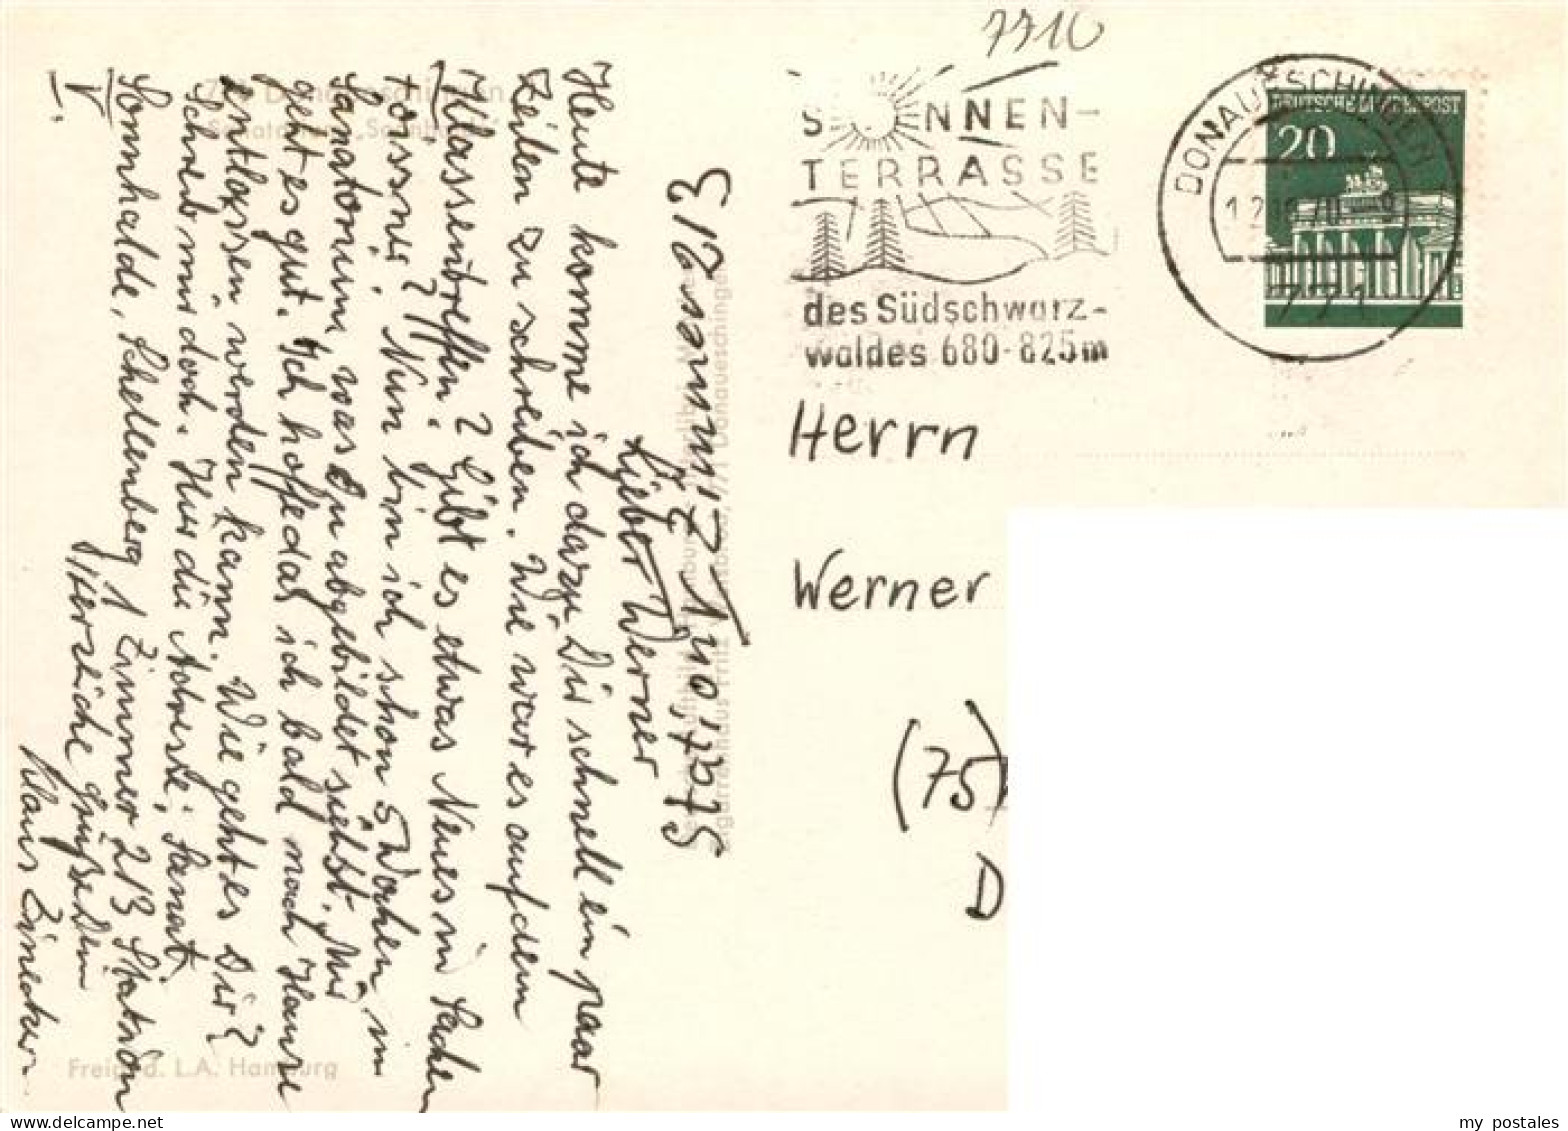 7710
SONNEN-
TERRASSE
des Südschwarz-
waldes 680-825m
DONAUESCHINGEN
771
DEUTSCHE BUNDESPOST
20
Herrn
Werner
(75)
D
Lieber Werner
Heute komme ich dazu Dir schnell ein paar
Zeilen zu schreiben. Wie war es auf dem
Klassentreffen? Gibt es etwas Neues in Sachen
? Nun bin ich schon 5 Wochen im
Sanatorium was Du abgebildet siehst. Mir
geht es gut. Ich hoffe daß ich bald nach Hause
entlassen werden kann. Wie geht es Dir?
Schreib mir doch. Hier die Adresse; Sanat.
Sonnhalde, Schellenberg 1 Zimmer 213 Station
V
Herzliche Grüße Dein
Klaus
Freigegeb. d. L.A. Hamburg
my postales